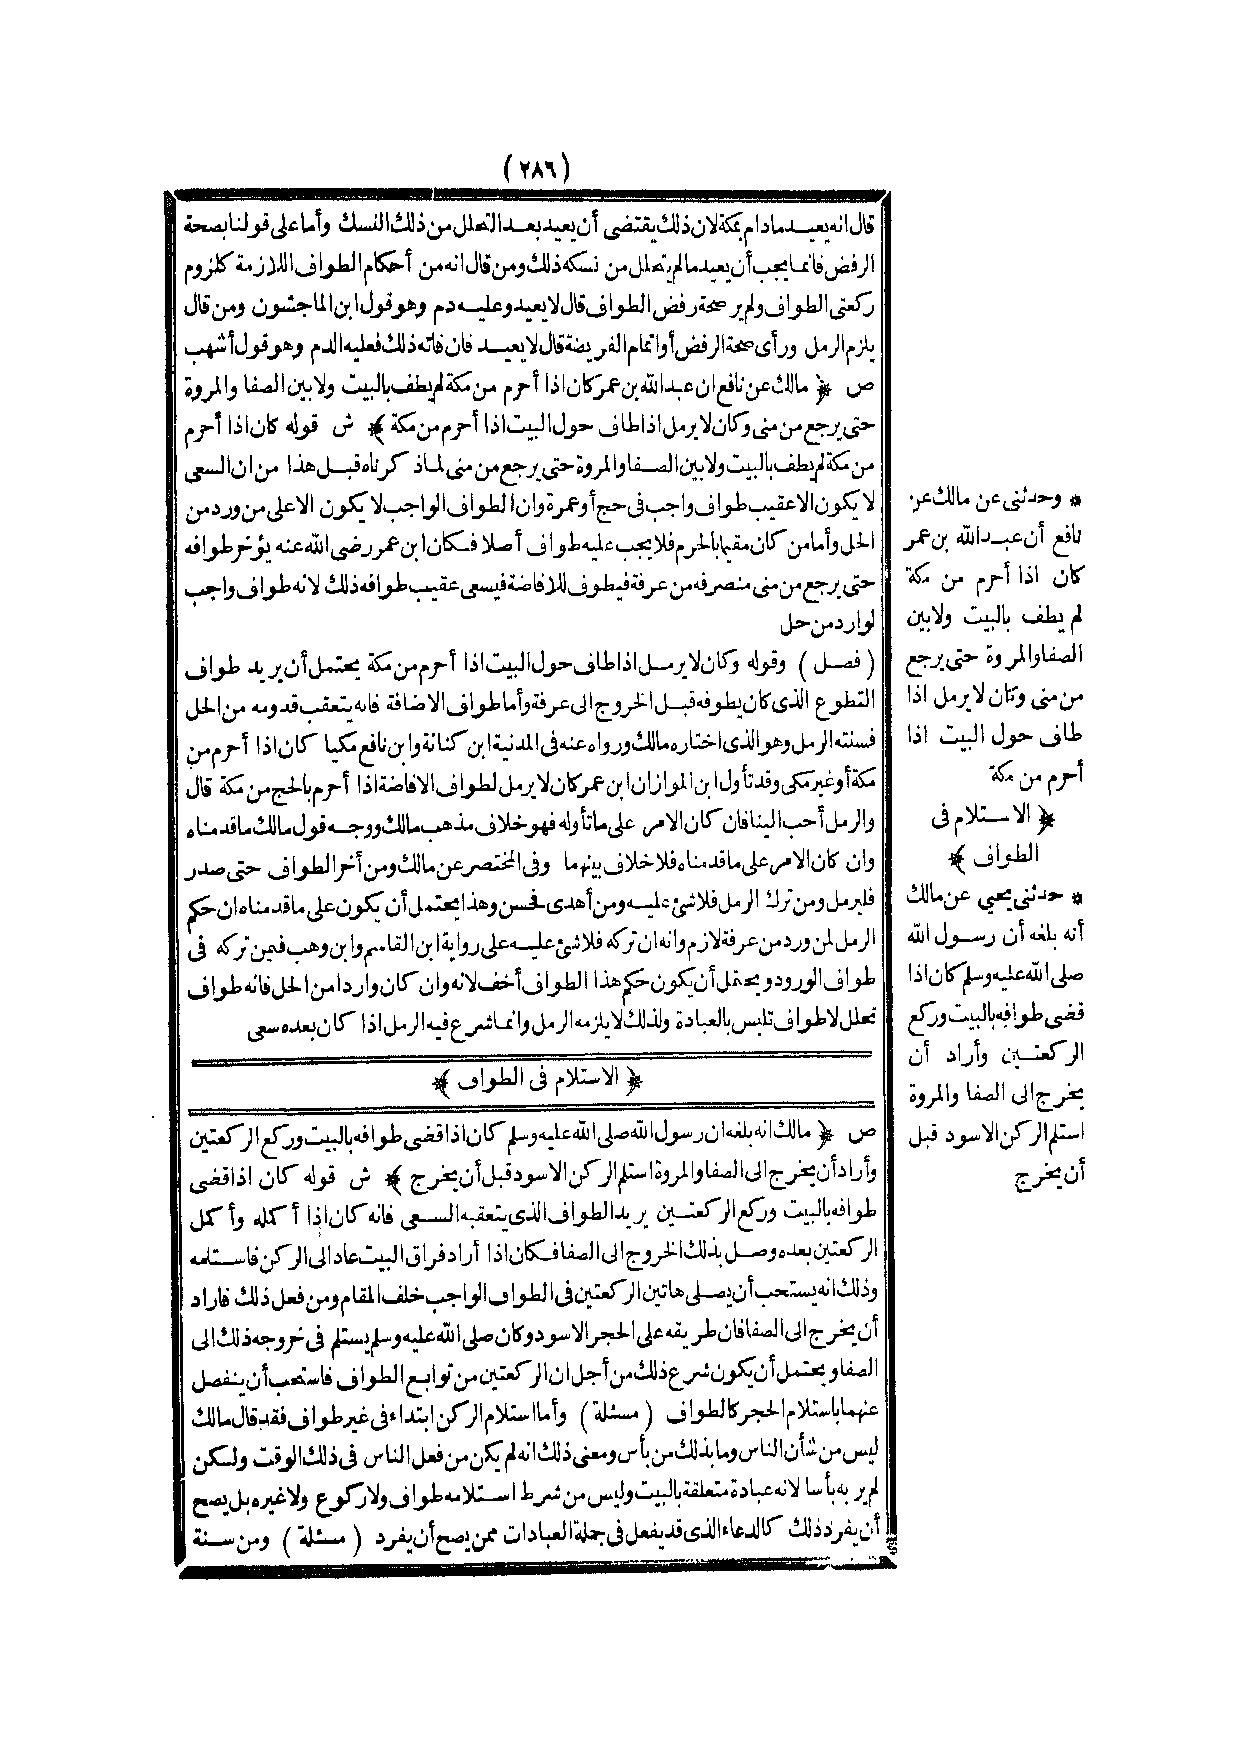 (٢٨٦)
قال انه يعيد مادام بمكة لان ذلك يقتضى أن يعيد بعد التحلل من ذلك النسك وأما على قولنا بصحة
الرفض فانما يجب أن يعيد مالم يتحلل من نسكه ذلك ومن قال انه من أحكام الطواف اللازمة كلزوم
ركعتى الطواف ولم ير صحة رفض الطواف قال لا يعيد وعليه دم وهو قول ابن الماجشون ومن قال
يلزم الرمل ورأى صحة الرفض أو اتمام الفريضة قال لا يعيد فان فاته ذلك فعليه الدم وهو قول أشهب
ص ﴿ مالك عن نافع ان عبد الله بن عمر كان اذا أحرم من مكة لم يطف بالبيت ولا بين الصفا والمروة
حتى يرجع من منى وكان لا يرمل اذا طاف حول البيت اذا أحرم من مكة ﴾ ش قوله كان اذا أحرم
من مكة لم يطف بالبيت ولا بين الصفا والمروة حتى يرجع من منى لماذكرناه قبل هذا من ان السعى
لا يكون الا عقيب طواف واجب فى حج أو عمرة وان الطواف الواجب لا يكون الا على من ورد من
الحل وأما من كان مقيما بالحرم فلا يجب عليه طواف أصلا فكان ابن عمر رضى الله عنه يؤخر طوافه
حتى يرجع من منى منصرفه من عرفة فيطوف للافاضة فيسعى عقيب طوافه ذلك لانه طواف واجب
لوارد من حل
(فصل) وقوله وكان لا يرمل اذا طاف حول البيت اذا أحرم من مكة يحتمل أن يريد طواف
التطوع الذى كان يطوفه قبل الخروج الى عرفة وأما طواف الاضافة فانه يتعقب قدومه من الحل
فسنته الرمل وهو الذى اختاره مالك ورواه عنه فى المدنية ابن كنانة وابن نافع مكيا كان اذا أحرم من
مكة أو غير مكى وقد تأول ابن المواز ان ابن عمر كان لا يرمل لطواف الافاضة اذا أحرم بالحج من مكة قال
والرمل أحب الينا فان كان الامر على ما تأوله فهو خلاف مذهب مالك ووجه قول مالك ما قدمناه
وان كان الامر على ما قدمناه فلا خلاف بينهما وفى المختصر عن مالك ومن أخر الطواف حتى صدر
فليرمل ومن ترك الرمل فلا شئ عليه ومن أهدى فحسن وهذا يحتمل أن يكون على ما قدمناه ان حكم
الرمل لمن ورد من عرفة لازم وانه ان تركه فلا شئ عليه على رواية ابن القاسم وابن وهب فيمن تركه فى
طواف الورود ويحتمل أن يكون حكم هذا الطواف أخف لانه وان كان واردا من الحل فانه طواف
تحلل لا طواف تلبس بالعبادة ولذلك لا يلزمه الرمل وانما شرع فيه الرمل اذا كان بعده سعى
﴿ الاستلام فى الطواف ﴾
ص ﴿ مالك انه بلغه ان رسول الله صلى الله عليه وسلم كان اذا قضى طوافه بالبيت وركع الركعتين
وأراد أن يخرج الى الصفا والمروة استلم الركن الاسود قبل أن يخرج ﴾ ش قوله كان اذا قضى
طوافه بالبيت وركع الركعتين يريد الطواف الذى يتعقبه السعى فانه كان اذا أكمله وأكمل
الركعتين بعده وصل بذلك الخروج الى الصفا فكان اذا أراد فراق البيت عاد الى الركن فاستلمه
وذلك انه يستحب أن يصلى هاتين الركعتين فى الطواف الواجب خلف المقام ومن فعل ذلك فاراد
أن يخرج الى الصفا فان طريقه على الحجر الاسود وكان صلى الله عليه وسلم يستلم فى خروجه ذلك الى
الصفا ويحتمل أن يكون شرع ذلك من أجل ان الركعتين من توابع الطواف فاستحب أن ينفصل
عنهما باستلام الحجر كالطواف (مسئلة) وأما استلام الركن ابتداء فى غير طواف فقد قال مالك
ليس من شأن الناس وما بذلك من بأس ومعنى ذلك انه لم يكن من فعل الناس فى ذلك الوقت ولكن
لم ير به بأسا لانه عبادة متعلقة بالبيت وليس من شرط استلامه طواف ولا ركوع ولا غيره بل يصح
أن يفرد ذلك كالدعاء الذى قد يفعل فى جملة العبادات ممن يصح أن يفرد (مسئلة) ومن سنة
* وحدثنى عن مالك عن
نافع أن عبد الله بن عمر
كان اذا أحرم من مكة
لم يطف بالبيت ولا بين
الصفا والمروة حتى يرجع
من منى وكان لا يرمل اذا
طاف حول البيت اذا
أحرم من مكة
﴿ الاستلام فى
الطواف ﴾
* حدثنى يحيى عن مالك
أنه بلغه أن رسول الله
صلى الله عليه وسلم كان اذا
قضى طوافه بالبيت وركع
الركعتين وأراد أن
يخرج الى الصفا والمروة
استلم الركن الاسود قبل
أن يخرج